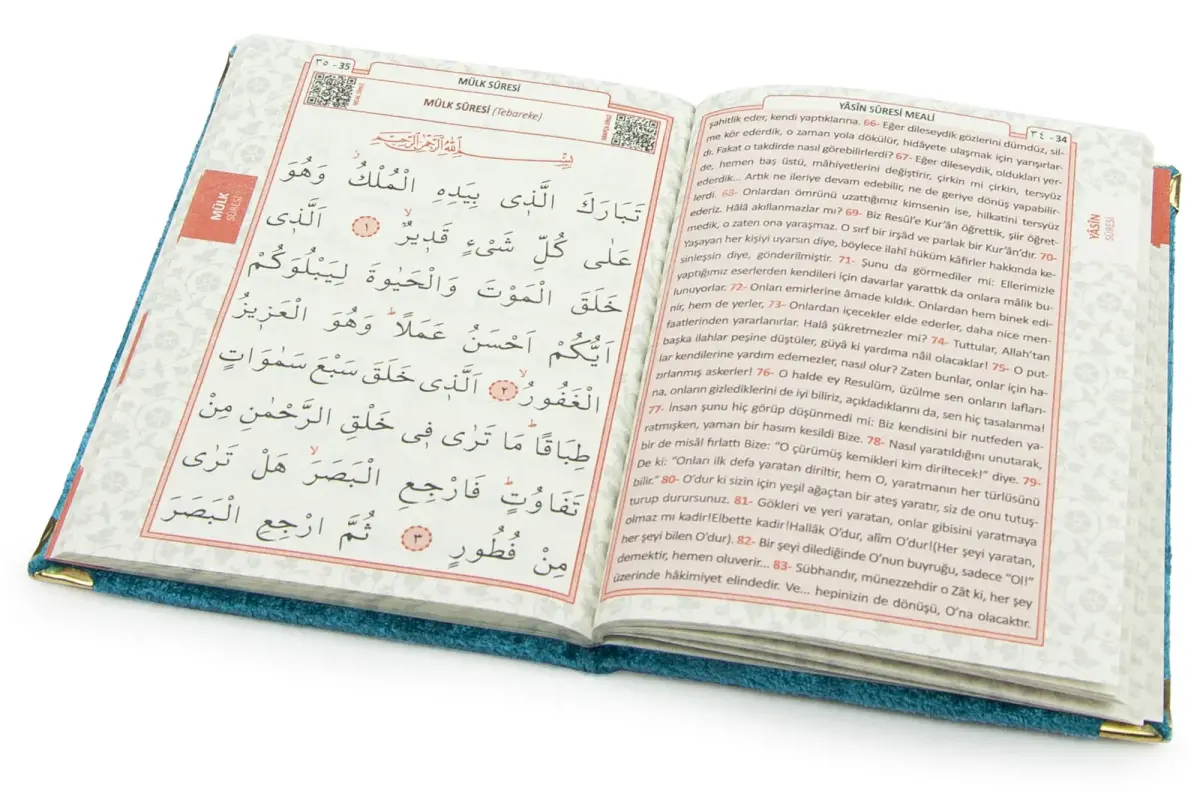 YÂSİN SÛRESİ MEALİ
٣٤ - 34
şahitlik eder, kendi yaptıklarına. 66- Eğer dileseydik gözlerini dümdüz, sil-
me kör ederdik, o zaman yola dökülür, hidâyete ulaşmak için yarışırlar-
dı. Fakat o takdirde nasıl görebilirlerdi? 67- Eğer dileseydik, oldukları yer-
de, hemen baş üstü, mâhiyetlerini değiştirir, çirkin mi çirkin, tersyüz
ederdik... Artık ne ileriye devam edebilir, ne de geriye dönüş yapabilir-
lerdi. 68- Onlardan ömrünü uzattığımız kimsenin ise, hilkatini tersyüz
ederiz. Hâlâ akıllanmazlar mı? 69- Biz Resûl’e Kur’ân öğrettik, şiir öğret-
medik, o zaten ona yaraşmaz. O sırf bir irşâd ve parlak bir Kur’ân’dır. 70-
Yaşayan her kişiyi uyarsın diye, böylece ilahî hüküm kâfirler hakkında ke-
sinleşsin diye, gönderilmiştir. 71- Şunu da görmediler mi: Ellerimizle
yaptığımız eserlerden kendileri için davarlar yarattık da onlara mâlik bu-
lunuyorlar. 72- Onları emirlerine âmade kıldık. Onlardan hem binek edi-
nir, hem de yerler, 73- Onlardan içecekler elde ederler, daha nice men-
faatlerinden yararlanırlar. Halâ şükretmezler mi? 74- Tuttular, Allah’tan
başka ilahlar peşine düştüler, güyâ ki yardıma nâil olacaklar! 75- O put-
lar kendilerine yardım edemezler, nasıl olur? Zaten bunlar, onlar için ha-
zırlanmış askerler! 76- O halde ey Resulüm, üzülme sen onların lafları-
na, onların gizlediklerini de iyi biliriz, açıkladıklarını da, sen hiç tasalanma!
77- İnsan şunu hiç görüp düşünmedi mi: Biz kendisini bir nutfeden ya-
ratmışken, yaman bir hasım kesildi Bize. 78- Nasıl yaratıldığını unutarak,
bir de misâl fırlattı Bize: “O çürümüş kemikleri kim diriltecek!” diye. 79-
De ki: “Onları ilk defa yaratan diriltir, hem O, yaratmanın her türlüsünü
bilir.” 80- O’dur ki sizin için yeşil ağaçtan bir ateş yaratır, siz de onu tutuş-
turup durursunuz. 81- Gökleri ve yeri yaratan, onlar gibisini yaratmaya
olmaz mı kadir!Elbette kadir!Hallâk O’dur, alîm O’dur!(Her şeyi yaratan,
her şeyi bilen O’dur). 82- Bir şeyi dilediğinde O’nun buyruğu, sadece “Ol!”
demektir, hemen oluverir... 83- Sübhandır, münezzehdir o Zât ki, her şey
üzerinde hâkimiyet elindedir. Ve... hepinizin de dönüşü, O’na olacaktır.
YÂSİN
SÛRESİ
٣٥ - 35
MÜLK SÛRESİ
MÜLK SÛRESİ (Tebareke)
بِسْمِ اللّٰهِ الرَّحْمٰنِ الرَّحِيمِ
تَبَارَكَ الَّذٖى بِيَدِهِ الْمُلْكُ وَهُوَ
عَلٰى كُلِّ شَىْءٍ قَدٖيرٌ ١ اَلَّذٖى
خَلَقَ الْمَوْتَ وَالْحَيٰوةَ لِيَبْلُوَكُمْ
اَيُّكُمْ اَحْسَنُ عَمَلًا وَهُوَ الْعَزٖيزُ
الْغَفُورُ ٢ اَلَّذٖى خَلَقَ سَبْعَ سَمٰوَاتٍ
طِبَاقًا مَا تَرٰى فٖى خَلْقِ الرَّحْمٰنِ مِنْ
تَفَاوُتٍ فَارْجِعِ الْبَصَرَ هَلْ تَرٰى
مِنْ فُطُورٍ ٣ ثُمَّ ارْجِعِ الْبَصَرَ
MÜLK
SÛRESİ